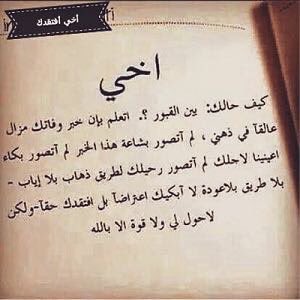 أخي افتقدك
اخي
كيف حالك: بين القبور ؟. اتعلم بإن خبر وفاتك مزال
عالقآ في ذهني ، لم آتصور بشاعة هذا الخبر لم آتصور بكاء
اعينينا لاجلك لم آتصور رحيلك لطريق ذهاب بلا إياب -
بلا طريق بلاعودة لا آبكيك اعتراضآ بل افتقدك حقآ-ولكن
لاحول لي ولا قوة الا بالله